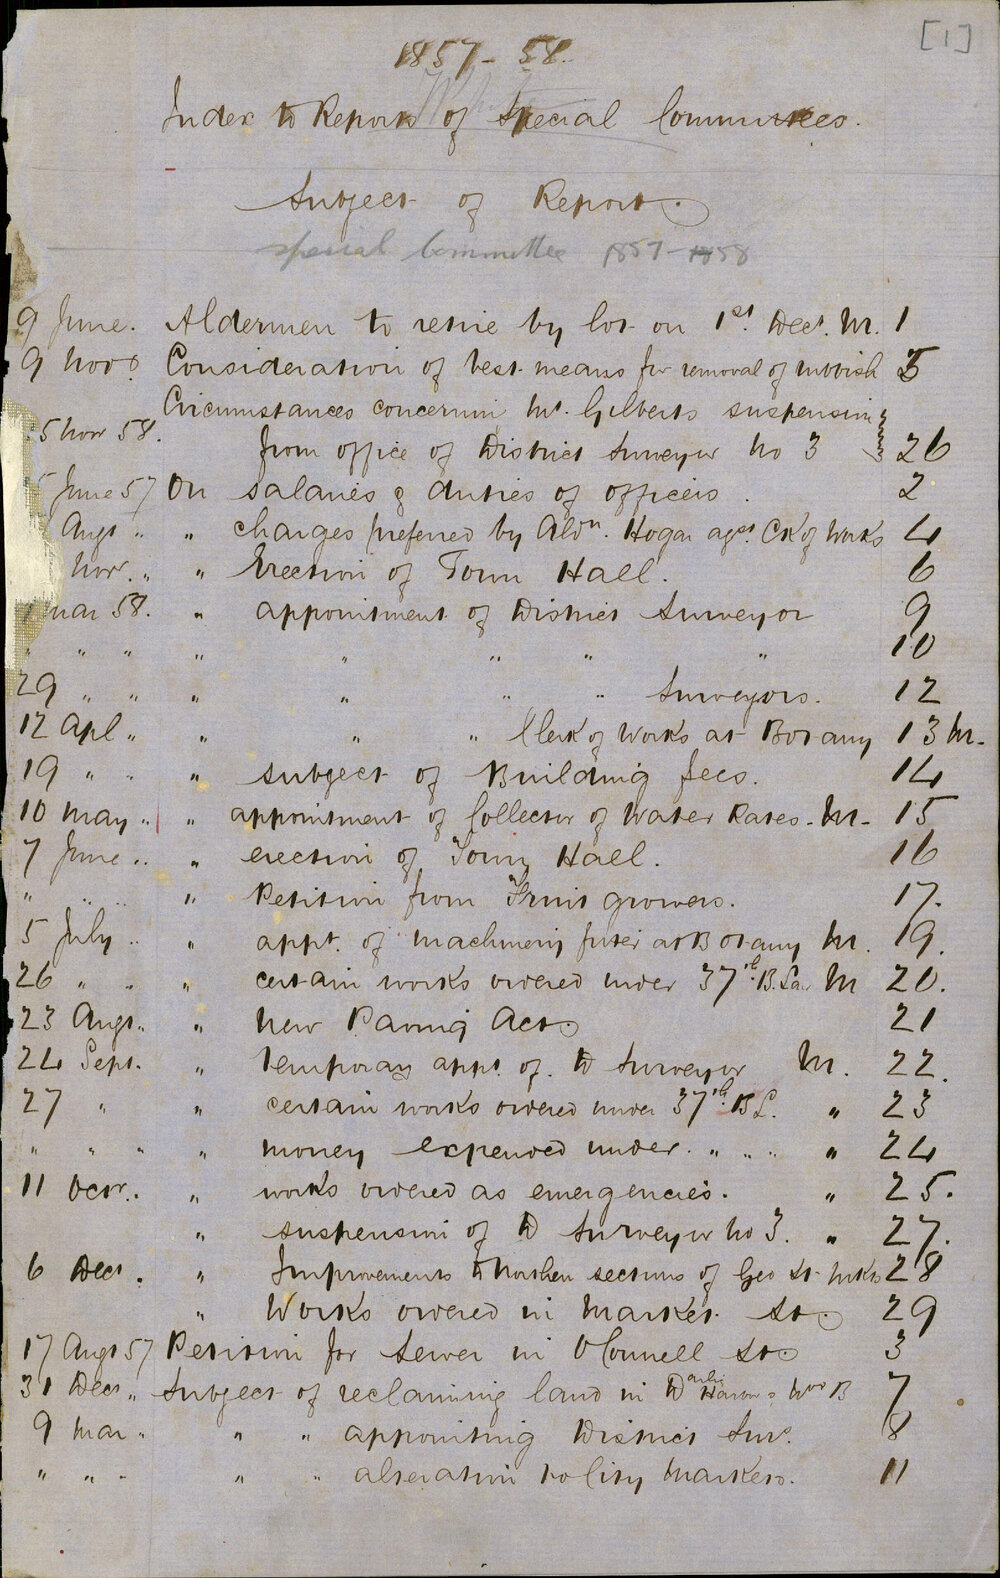 [1]
1857-58.
Index to Reports of Special Committees.
Subject of Report.
Special Committee 1857-1858
9 June. Aldermen to retire by lot on 1st Decr. M. 1
9 Novr. Consideration of best means for removal of rubbish 5
Circumstances concerning Mr. Gilberts suspension
5 Novr 58. from office of District Surveyor No 3 26
5 June 57 On salaries & duties of officers. 2
Augt " " charges preferred by Aldn. Hogan agst. Ck of Works 4
Novr. " " Erection of Town Hall. 6
1 Mar 58. " appointment of District Surveyor 9
" " " " " " " " 10
29 " " " " " " Surveyors. 12
12 Apl " " " " Clerk of Works at Botany 13 M.
19 " " " subject of Building fees. 14
10 May " " appointment of Collector of Water Rates - M - 15
7 June " " erection of Town Hall. 16
" " " " Petition from Fruit growers. 17.
5 July " " appt. of machinery fitter at Botany M. 19.
26 " " " certain works ordered under 37th B. Law M 20.
23 Augt " " New Paving Act. 21
24 Sept. " temporary appt. of D Surveyor M. 22.
27 " " certain works ordered under 37th B L. " 23
" " " " money expended under. " " " " 24
11 Octr. " " works ordered as emergencies. " 25.
" suspension of D Surveyor No 3. " 27.
6 Decr. " Improvements to Northern sections of Geo St Mkts 28
" Works ordered in Market St. 29
17 Augt 57 Petition for Sewer in O'Connell St. 3
31 Decr " Subject of reclaiming land in Darlg Harour 7
9 Mar " " " appointing District Sur. 8
" " " " " alteration to City Markets. 11